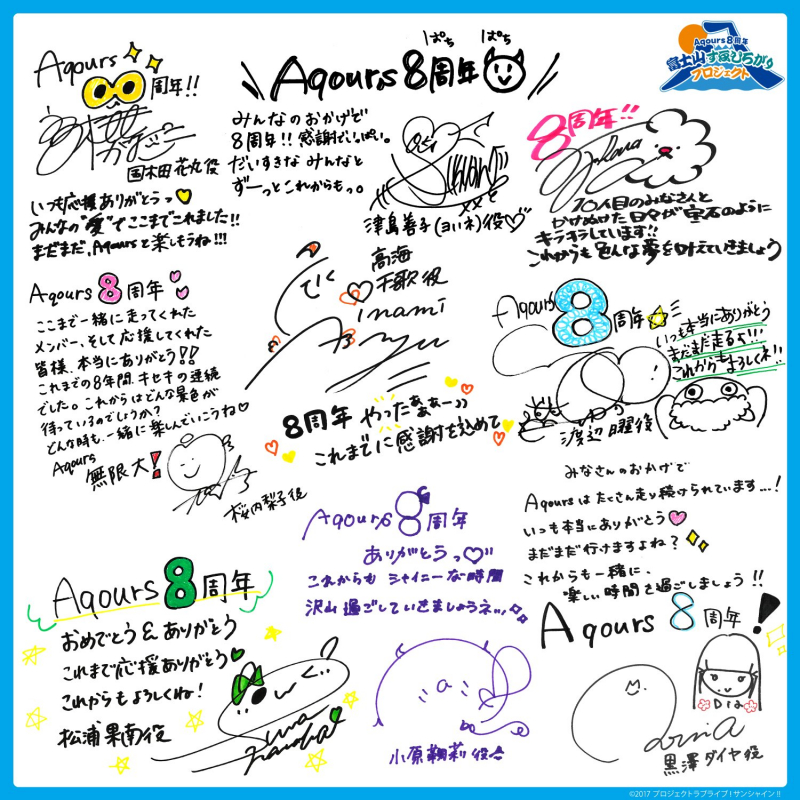 Aqours 8周年
富士山すそひろがり
プロジェクト
Aqours
周年!!
国木田 花丸役
いつも応援ありがとうっ
みんなの"愛"でここまでこれました!!
まだまだ、Aqoursと楽しもうね!!!
ぱち ぱち
Aqours 8周年
みんなのおかげで
8周年!!感謝でいっぱい。
だいすきな みんなと
ずーっとこれからもっ。
津島善子(ヨハネ)役♡
8周年!!
10人目のみなさんと
かけぬけた日々が宝石のように
キラキラしています!!
これからも色んな夢を叶えていきましょう
Aqours 8 周年
ここまで一緒に走ってくれた
メンバー、そして応援してくれた
皆様、本当にありがとう!!
これまでの8年間、キセキの連続
でした。これからはどんな景色が
待っているのでしょうか?
どんな時も一緒に楽しんでいこうね♡
Aqours
無限大!
桜内梨子役
高海
千歌役
inami
8周年 やったぁぁぁー
これまでに感謝を込めて
Aqours
8
周年
いつも本当にありがとう
まだまだ走るよ!!!
これからもよろしくね!!
渡辺 曜役
みなさんのおかげで
Aqoursは たくさん走り続けられています...!
いつも本当にありがとう
まだまだ行けますよね?
これからも一緒に、
楽しい時間を過ごしましょう!!
Aqours 8 周年
Dia
黒澤ダイヤ役
Aqours 8周年
ありがとうっ♡
これからも シャイニーな時間
沢山過ごしていきましょうネッ
小原鞠莉 役
Aqours 8 周年
おめでとう & ありがとう
これまで応援ありがとう
これからもよろしくね!
松浦 果南役
©2017 プロジェクトラブライブ!サンシャイン!!